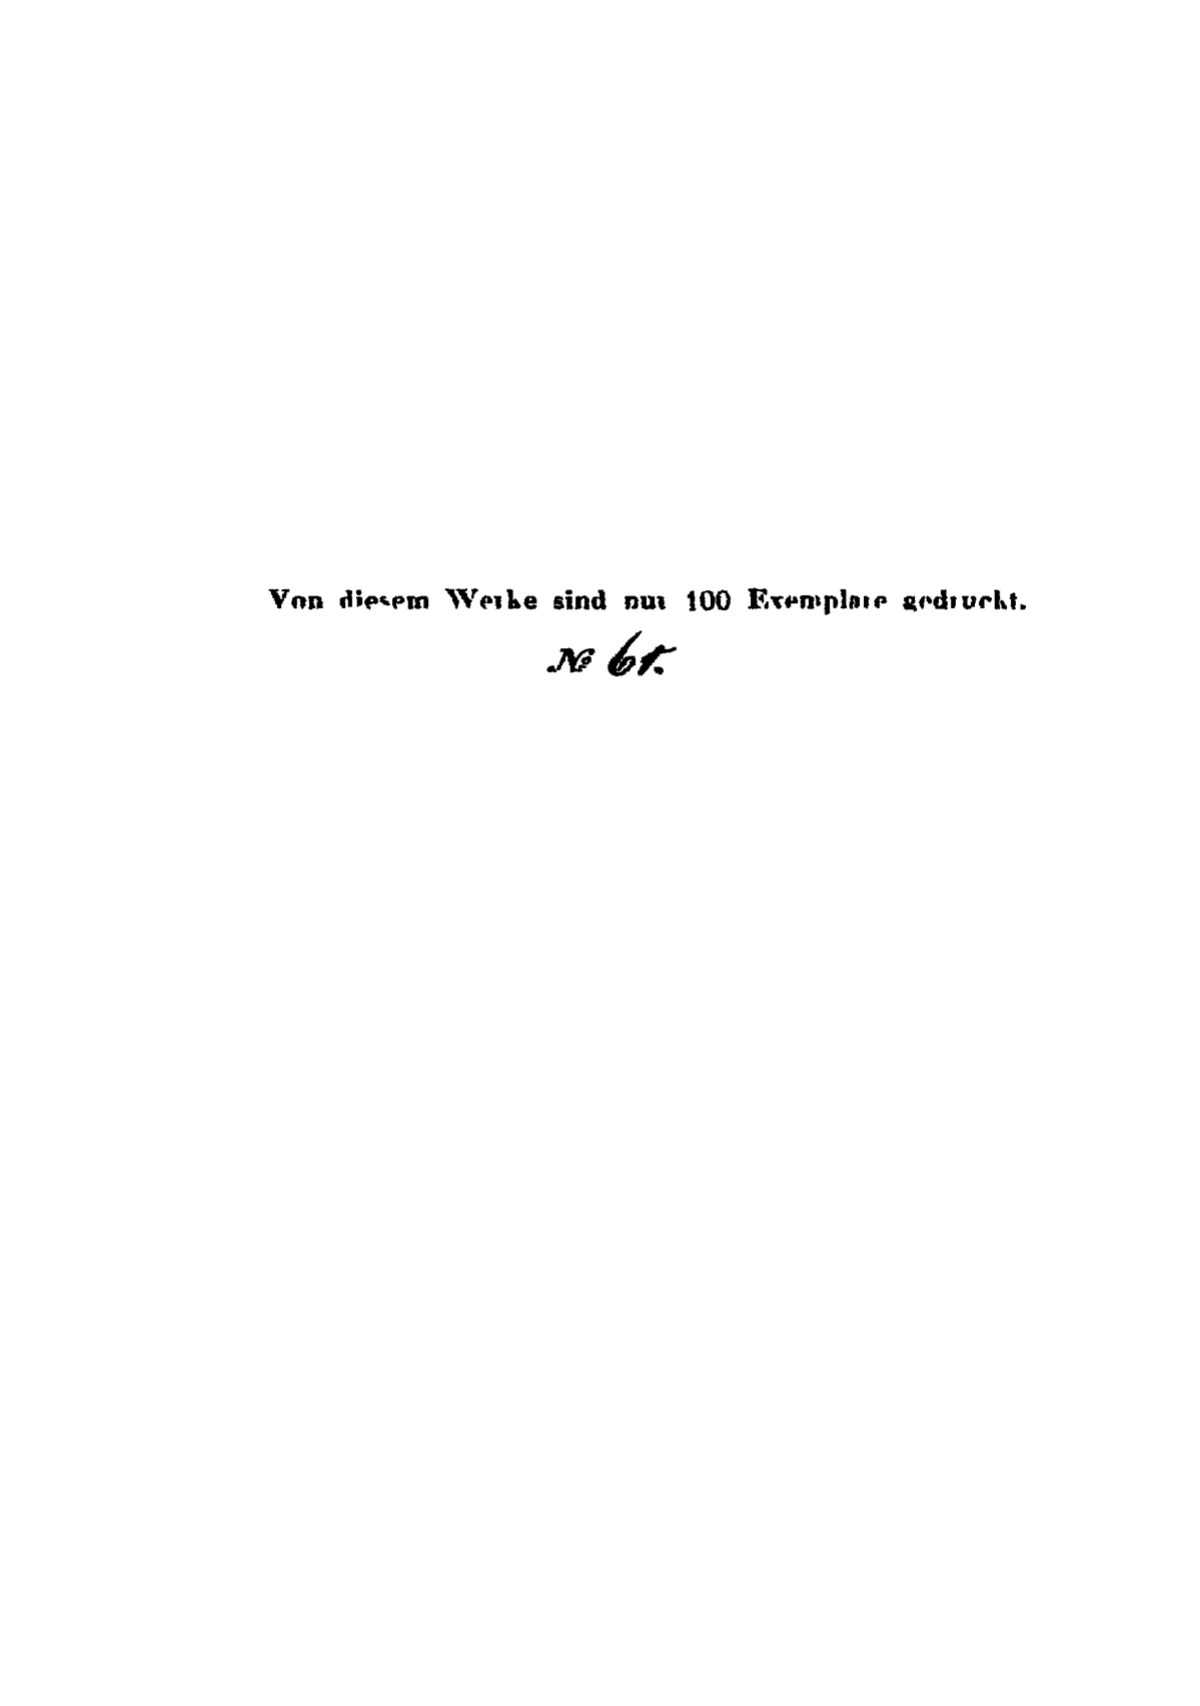 Von diesem Werke sind nur 100 Exemplare gedruckt.
№ 65.